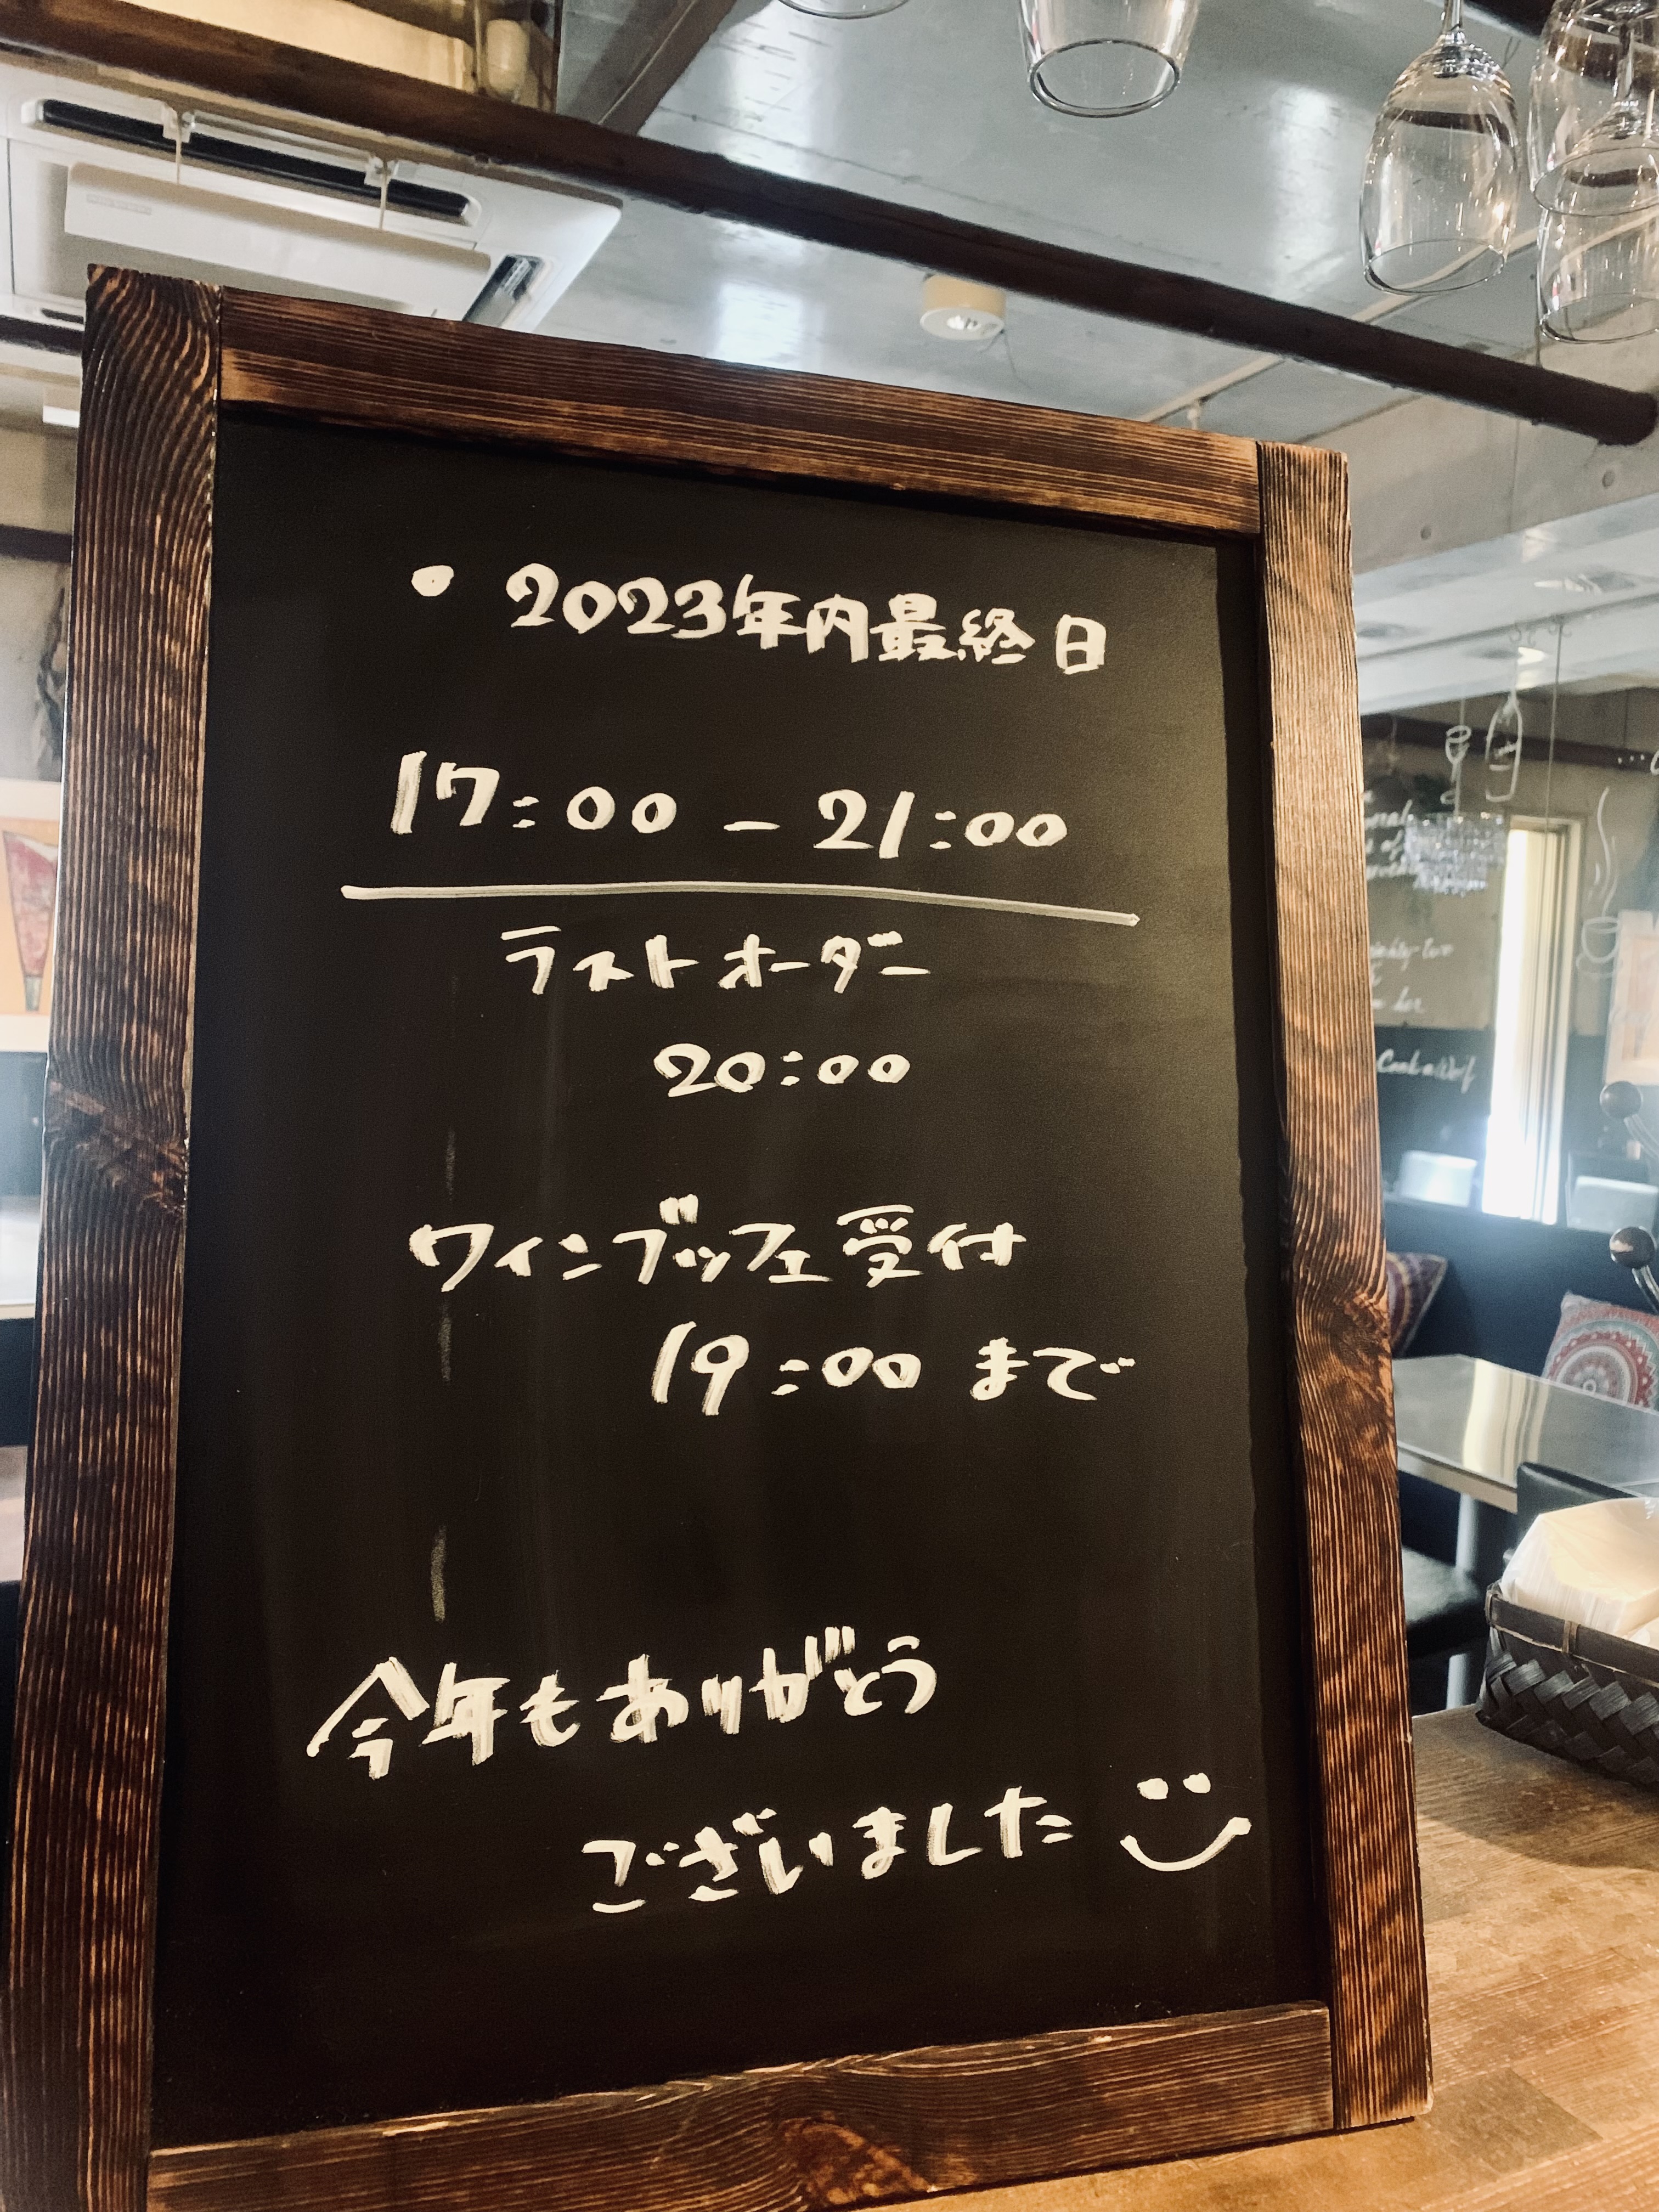 • 2023年内最終日
17:00 - 21:00
ラストオーダー
20:00
ワインブッフェ受付
19:00 まで
今年もありがとう
ございました